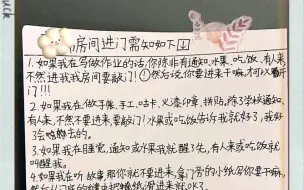 uck
房间进门需知如下
1.如果我在写做作业的话,你除非有通知,水果、吃饭、有人来
不然进我房间要敲门!①然后说你要进来干嘛,才可以看
门!!!
2.如果我在做手账、手工、咕卡、火漆印章、拼贴,除3学校通知,
有人来,不然不进来,要敲门!水果或吃饭告诉我就好3,我好
3会
3.如果我在睡觉,通知或水果我就醒3先,有人来或吃饭就
叫醒我。
4.如果我在听故事,那你就不要进来,拿门旁的小纸写你要干嘛,
然后从门底的缝中把